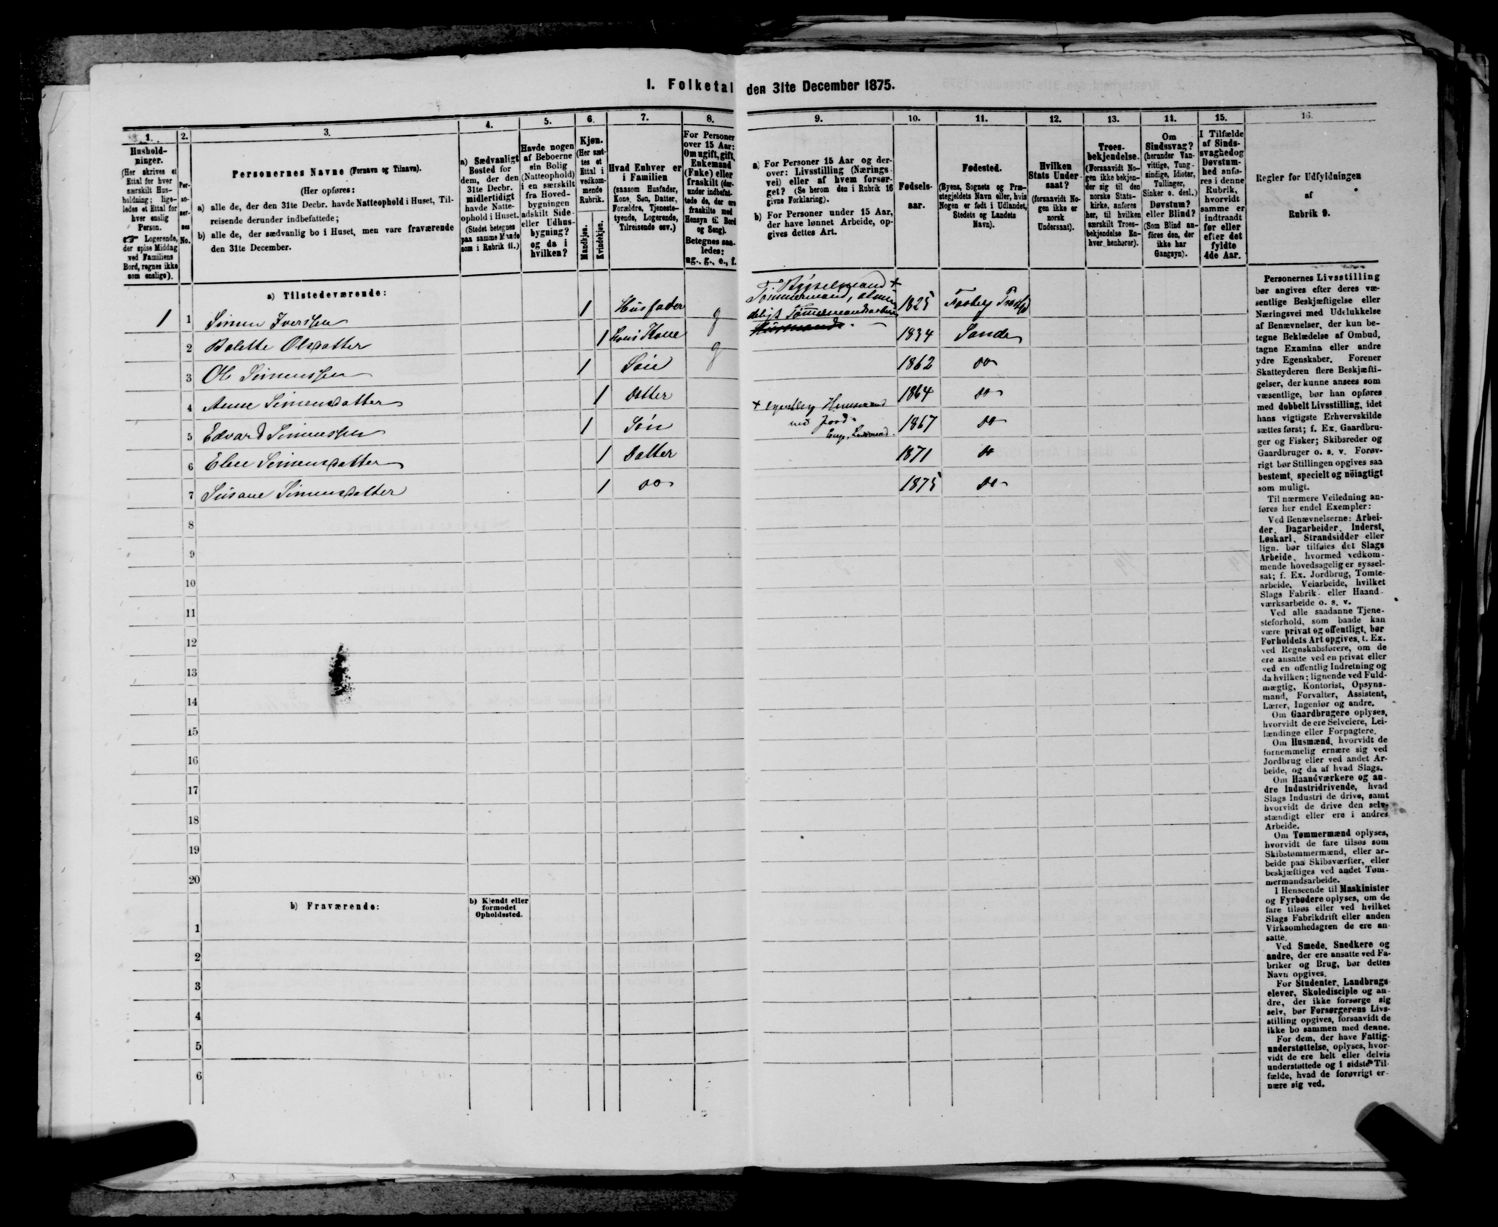 I. Folketal den 31te December 1875.
1. 2. 3. 4. 5. 6. 7. 8. 9. 10. 11. 12. 13. 14. 15. 16.
Hushold-
ninger.
(Her skrives et
Ettal for hver
særskilt Hus-
holdning; lige-
ledes et Ettal for
hver enslig
Person.
Logerende,
der spise Middag
ved Familiens
Bord, regnes ikke
som enslige).
Per-
so-
ner-
nes
No.
Personernes Navne (Fornavn og Tilnavn).
(Her opføres:
a) alle de, der den 31te Decbr. havde Natteophold i Huset, Til-
reisende derunder indbefattede;
b) alle de, der sædvanlig bo i Huset, men vare fraværende
den 31te December.
a) Sædvanligt
Bosted for
dem, der den
31te Decbr.
midlertidigt
havde Natte-
ophold i Huset.
(Stedet betegnes
paa samme Maade
som i Rubrik 11.)
Havde nogen
af Beboerne
sin Bolig
(Natteophold)
i en særskilt
fra Hoved-
bygningen
adskilt Side-
eller Udhus-
bygning?
og da i
hvilken?
Kjøn.
(Her sæt-
tes et
Ettal i
vedkom-
mende
Rubrik.
Mandkjøn.
Kvindekjøn.
Hvad Enhver er
i Familien
(saasom Husfader,
Kone, Søn, Datter,
Forældre, Tjeneste-
tyende, Logerende,
Tilreisende osv.)
For Personer
over 15 Aar:
Om ugift, gift,
Enkemand
(Enke) eller
fraskilt (der-
under indbefat-
tede de, der ere
fraskilte med
Hensyn til Bord
og Seng).
Betegnes saa-
ledes:
ug., g., e., f.
a) For Personer 15 Aar og der-
over: Livsstilling (Nærings-
vei) eller af hvem forsør-
get? (Se herom den i Rubrik 16
givne Forklaring).
b) For Personer under 15 Aar,
der have lønnet Arbeide, op-
gives dettes Art.
Fødsels-
aar.
Fødested.
(Byens, Sognets og Præ-
stegjeldets Navn eller, hvis
Nogen er født i Udlandet,
Stedets og Landets
Navn).
Hvilken
Stats Under-
saat?
(forsaavidt No-
gen ikke er
norsk
Undersaat).
Troes-
bekjendelse.
(Forsaavidt No-
gen ikke bekjen-
der sig til den
norske Stats-
kirke, anføres
her, til hvilken
særskilt Troes-
bekjendelse En-
hver henhører).
Om
Sindssvag?
(herunder Van-
vittige, Tung-
sindige, Idioter,
Tullinger,
Sinker o. desl.)
Døvstum?
eller Blind?
(Som Blind an-
føres den, der
ikke har
Gangsyn).
I Tilfælde
af Sinds-
svaghed og
Døvstum-
hed anfø-
res i denne
Rubrik,
hvorvidt
samme er
indtraadt
før eller
efter det
fyldte
4de Aar.
Regler for Udfyldningen
af
Rubrik 9.
a) Tilstedeværende:
1 1 Simen Iverssen 1 Husfader g
Tømmermand, 1825
2 Bolette Olsdatter 1 Huus Kone g 1834 Sande
3 Ole Simenssen 1 Søn 1862 do
4 Anne Simensdatter 1 Datter 1864 do
5 Edvard Simenssen 1 Søn 1867 do
6 Elen Simensdatter 1 Datter 1871 do
7 Susane Simensdatter 1 do 1875 do
+ egentlig Huusmand
med Jord
8
9
10
11
12
13
14
15
16
17
18
19
20
b) Fraværende:
b) Kjendt eller
formodet
Opholdssted.
1
2
3
4
5
6
Personernes Livsstilling
bør angives efter deres væ-
sentlige Beskjæftigelse eller
Næringsvei med Udelukkelse
af Benævnelser, der kun be-
tegne Beklædelse af Ombud,
tagne Examina eller andre
ydre Egenskaber. Forener
Skatteyderen flere Beskjæfti-
gelser, der kunne ansees som
væsentlige, bør han opføres
med dobbelt Livsstilling, idet
hans vigtigste Erhvervskilde
sættes først; f. Ex. Gaardbru-
ger og Fisker; Skibsreder og
Gaardbruger o. s. v. Forøv-
rigt bør Stillingen opgives saa
bestemt, specielt og nøiagtigt
som muligt.
Til nærmere Veiledning an-
føres her endel Exempler:
Ved Benævnelserne: Arbei-
der, Dagarbeider, Inderst,
Løskarl, Strandsidder eller
lign. bør tilføies det Slags
Arbeide, hvormed vedkom-
mende hovedsagelig er syssel-
sat; f. Ex. Jordbrug, Tomte-
arbeide, Veiarbeide, hvilket
Slags Fabrik- eller Haand-
værksarbeide o. s. v.
Ved alle saadanne Tjene-
steforhold, som baade kan
være privat og offentligt, bør
Forholdets Art opgives, t. Ex.
ved Regnskabsførere, om de
ere ansatte ved en privat eller
ved en offentlig Indretning og
da hvilken; lignende ved Fuld-
mægtig, Kontorist, Opsyns-
mand, Forvalter, Assistent,
Lærer, Ingeniør og andre.
Om Gaardbrugere oplyses,
hvorvidt de ere Selveiere, Lei-
lændinge eller Forpagtere.
Om Husmænd, hvorvidt de
fornemmelig ernære sig ved
Jordbrug eller ved andet Ar-
beide, og da af hvad Slags.
Om Haandværkere og an-
dre Industridrivende, hvad
Slags Industri de drive, samt
hvorvidt de drive den selv-
stændigt eller ere i andres
Arbeide.
Om Tømmermænd oplyses,
hvorvidt de fare tilsøs som
Skibstømmermænd, eller ar-
beide paa Skibsværfter, eller
beskjæftiges ved andet Tøm-
mermandsarbeide.
I Henseende til Maskinister
og Fyrbødere oplyses, om de
fare tilsøs eller ved hvilket
Slags Fabrikdrift eller anden
Virksomhedsgren de ere an-
satte.
Ved Smede, Snedkere og
andre, der ere ansatte ved Fa-
briker og Brug, bør dettes
Navn opgives.
For Studenter, Landbrugs-
elever, Skoledisciple og an-
dre, der ikke forsørge sig
selv, bør Forsørgerens Livs-
stilling opgives, forsaavidt de
ikke bo sammen med denne.
For dem, der have Fattig-
understøttelse, oplyses, hvor-
vidt de ere helt eller delvis
understøttede og i sidste Til-
fælde, hvad de forøvrigt er-
nære sig ved.